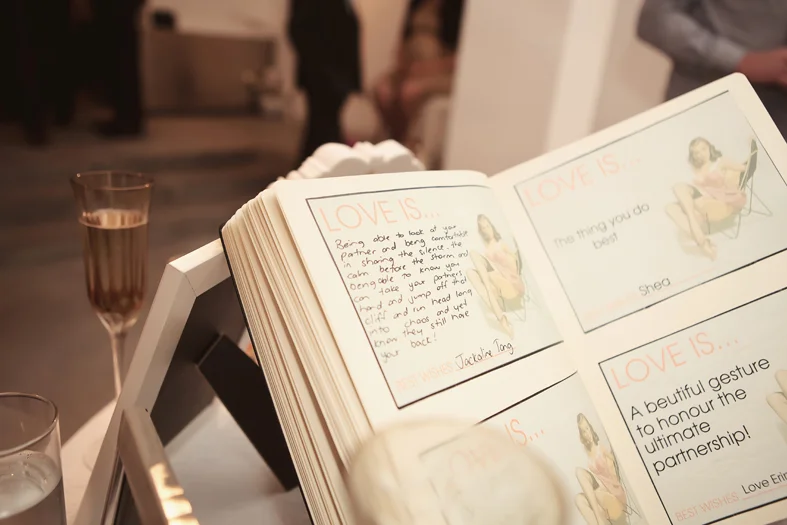 LOVE IS...
Being able to look at your
partner and being comfortable
in sharing the silence, the
calm before the storm and
being able to know you
can take your partners
hand and jump off that
cliff and run head long
into chaos and yet
know they still have
your back!
BEST WISHES Jackaline Tang.
LOVE IS...
The thing you do
best!
Shea
IS...
LOVE IS...
A beutiful gesture
to honour the
ultimate
partnership!
BEST WISHES Love Erin